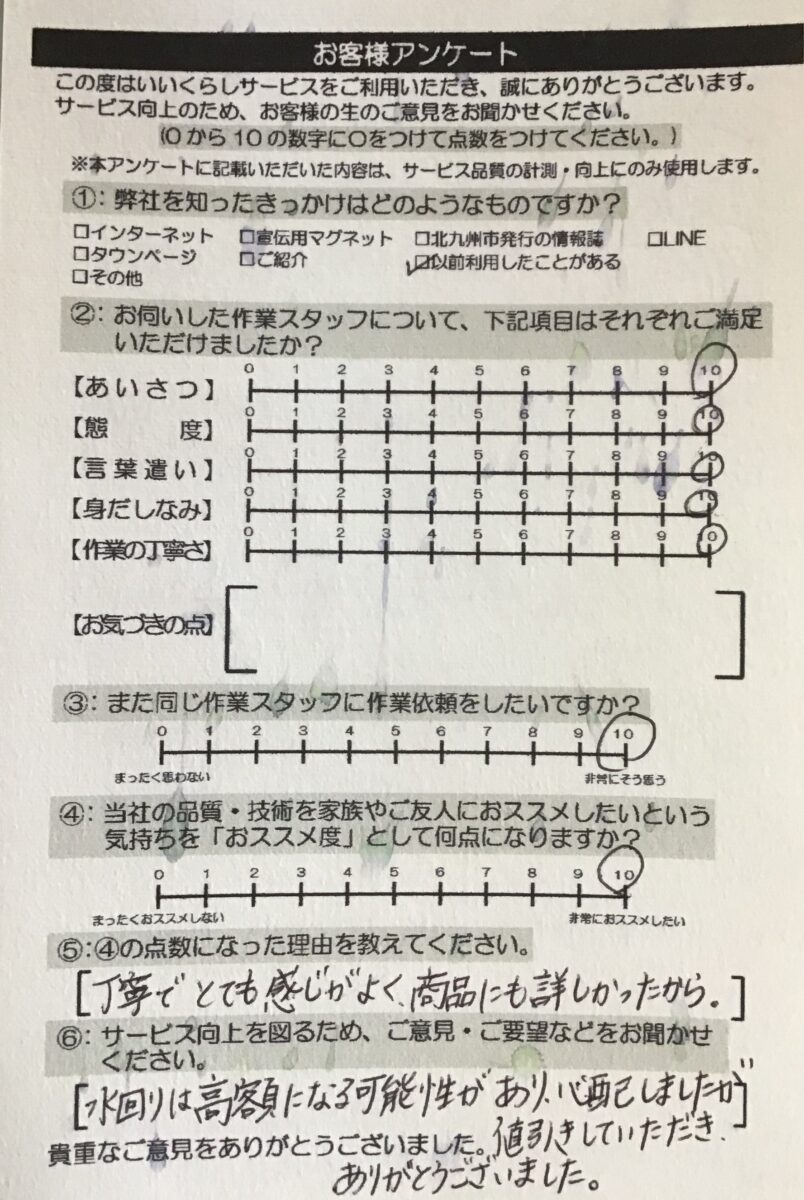 お客様アンケート
この度はいいくらしサービスをご利用いただき、誠にありがとうございます。
サービス向上のため、お客様の生のご意見をお聞かせください。
(0から10の数字に○をつけて点数をつけてください。)
※本アンケートに記載いただいた内容は、サービス品質の計測・向上にのみ使用します。
①：弊社を知ったきっかけはどのようなものですか？
□インターネット □宣伝用マグネット □北九州市発行の情報誌 □LINE
□タウンページ □ご紹介 ☑以前利用したことがある
□その他
②：お伺いした作業スタッフについて、下記項目はそれぞれご満足
いただけましたか？
【あいさつ】 0 1 2 3 4 5 6 7 8 9 10
【態度】 0 1 2 3 4 5 6 7 8 9 10
【言葉遣い】 0 1 2 3 4 5 6 7 8 9 10
【身だしなみ】 0 1 2 3 4 5 6 7 8 9 10
【作業の丁寧さ】 0 1 2 3 4 5 6 7 8 9 10
【お気づきの点】
③：また同じ作業スタッフに作業依頼をしたいですか？
0 1 2 3 4 5 6 7 8 9 10
まったく思わない 非常にそう思う
④：当社の品質・技術を家族やご友人におススメしたいという
気持ちを「おススメ度」として何点になりますか？
0 1 2 3 4 5 6 7 8 9 10
まったくおススメしない 非常におススメしたい
⑤：④の点数になった理由を教えてください。
[丁寧でとても感じがよく、商品にも詳しかったから。]
⑥：サービス向上を図るため、ご意見・ご要望などをお聞かせ
ください。
[水回りは高額になる可能性があり、心配しましたが]
貴重なご意見をありがとうございました。値引きしていただき、
ありがとうございました。